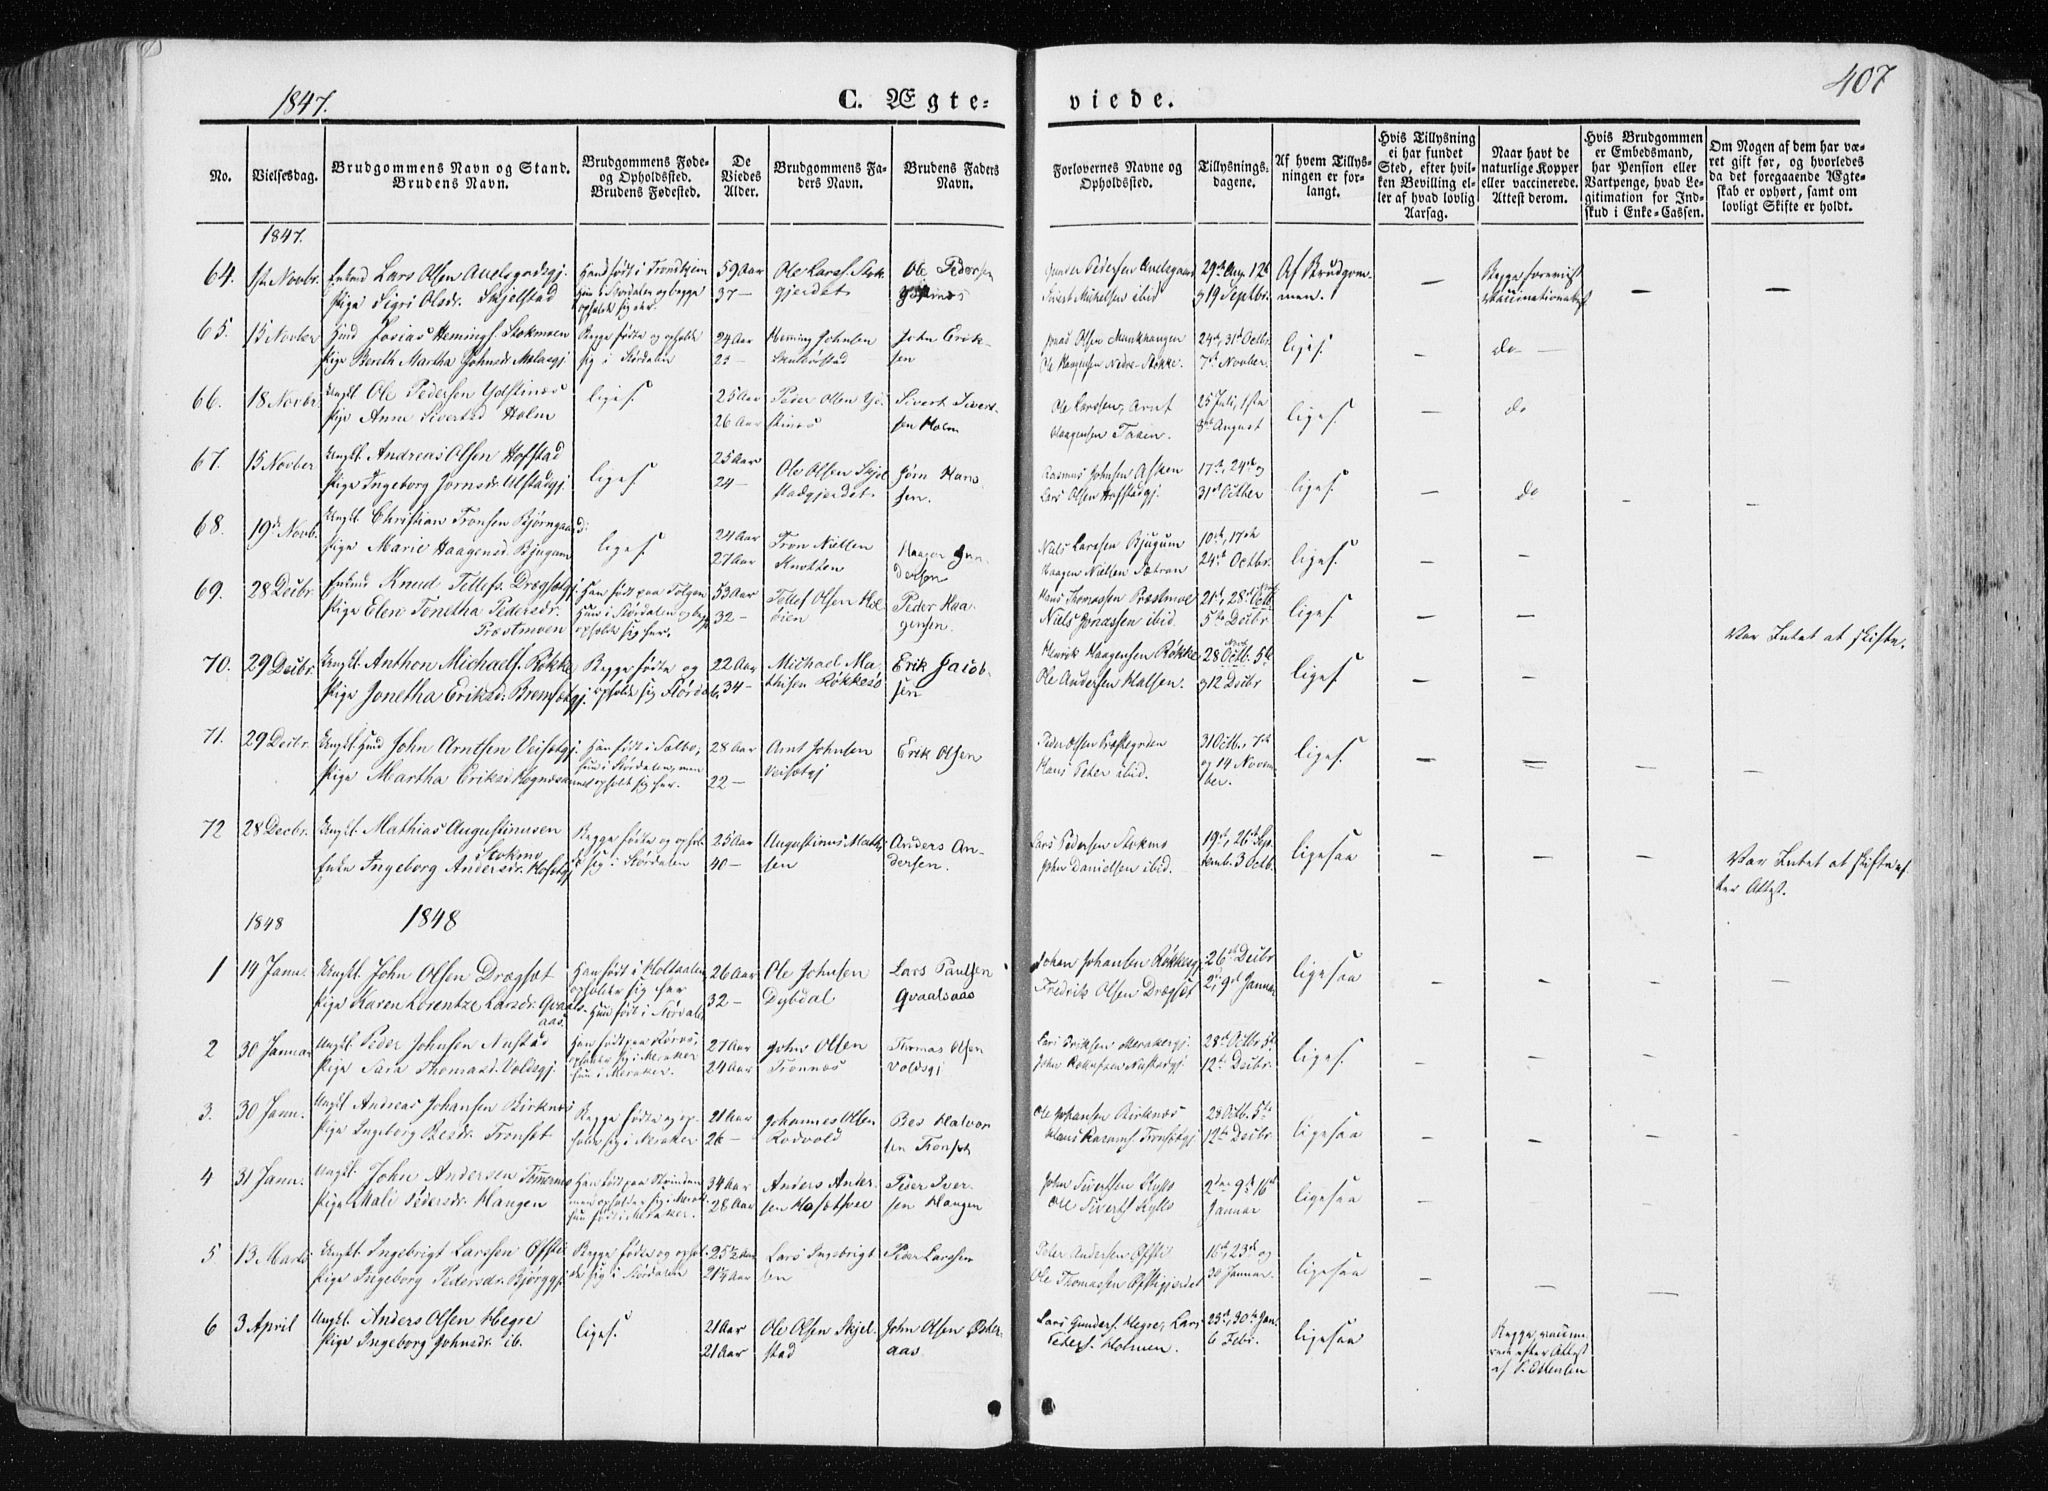 1847.
C. Ægte-
viede.
407
No.
Vielsesdag.
Brudgommens Navn og Stand.
Brudens Navn.
Brudgommens Føde-
og Opholdssted.
Brudens Fødested.
De
Viedes
Alder.
Brudgommens Fa-
ders Navn.
Brudens Faders
Navn.
Forlovernes Navne og
Opholdssted.
Tillysnings-
dagene.
Af hvem Tillys-
ningen er for-
langt.
Hvis Tillysning
ei har fundet
Sted, efter hvil-
ken Bevilling el-
ler af hvad lovlig
Aarsag.
Naar havt de
naturlige Kopper
eller vaccinerede.
Attest derom.
Hvis Brudgommen
er Embedsmand,
har Pension eller
Vartpenge, hvad Le-
gitimation for Ind-
skud i Enke-Cassen.
Om Nogen af dem har væ-
ret gift før, og hvorledes
da det foregaaende Ægte-
skab er ophørt, samt om
lovligt Skifte er holdt.
1847.
64. 1ste Novbr. Enkmd Lars Olsen
Pige Sigri Olsdr. Skjelstad
Han født i Trondhjem
Hun i Størdalen og begge
opholde sig her.
59 Aar
37 —
Ole Larss. Stok
gjerdet
Ole Pedersen
Pedersen
Sivert Michelsen ibid
29de Aug. 12te
og 19 Septbr.
Af Brudgom-
men.
Begge forevist
Vaccinationatest
65. 15 Novber Josias Hemings. Stokmoen
Pige Bereth Martha Johnsdr.
Begge fødte og opholde
sig i Størdalen
24 Aar
23 —
Heming Johnsen
John Erik-
sen
Olsen Munkhaugen
Ole Haagensen Nedre-Røkke.
24de, 31te Octbr.
7de Novber.
liges.
do
66. 18 Novbr. Ungkl. Ole Pedersen
Pige Anne Sivertsd. Holm
liges.
25 Aar
26 Aar
Peder Olsen
Sivert Sivert-
sen Holm
Ole Larssen, Arnt
Haagensen
25 Juli, 1ste
8de August
liges.
do
67. 15 Novber Ungkl. Andreas Olsen Hofstad
Pige Ingeborg Jørnsdr.
liges.
25 Aar
24 —
Ole Olsen Skjel
stadgjerdet.
Jørn Hans
sen.
Rasmus Johnsen
Lars Olsen Hofstadgj.
17de, 24de og
31te Octber
liges.
do
68. 19de Novb. Ungkl. Christian Tronsen Bjørngaard
Pige Marie Haagensd. Bjugum
liges.
24 Aar
27 Aar
Tron Nielsen
Haagen
Niels Larssen Bjugum
Haagen Nielsen
10de, 17de
24de Octbr.
liges.
69. 28 Decbr. Enkmd Knud Tellefs.
Pige Elen Jonetha Pedersdr.
Præstmoen
Han født paa Tolgen
Hun i Størdalen og begge
opholde sig her.
53 Aar
32 —
Tellef Olsen
Peder Haa-
gensen.
Hans Thomassen Præstmoe
Niels Jonassen ibid.
21de, 28de
5te Decbr
liges.
Var Intet at skifte.
70. 29 Decbr. Ungkl. Anthon Michaels. Røkke
Pige Jonetha Eriksd.
Begge fødte og
opholde sig i Størdal
22 Aar
34 —
Michael Ma-
thisen
Erik Jacob-
sen
Henrik Haagensen Røkke
Ole Andersen Halsen.
28 Octb. 5te
og 12 Decbr
liges.
71. 29 Decbr. John Arntsen
Pige Martha Eriksd.
Han født i Selbo,
hun i Størdalen, men
opholde sig her.
28 Aar
22 —
Arnt Johnsen
Erik Olsen
Peder Olsen
Hans Peter ibid.
31 Octb., 7de
og 14 Novem
ber.
liges.
72 28 Decbr. Ungkl. Mathias Augustinusen
Stokmo
Enke Ingeborg Andersdr.
Begge fødte og ophol-
de sig i Størdalen
25 Aar
40 —
Augustinus Math
sen
Anders An-
dersen.
Lars Pedersen Stokmo
John Danielsen ibid.
19de, 26de Sep-
temb. 3 Octb.
ligesaa
Var Intet at skifte ef-
ter Attest.
1848
1848
1 14 Jann. Ungkl. John Olsen Drægset
Pige Karen Lorentze Larsdr. Qvaals-
aas
Han født i Holtaalen
opholder sig her
Hun født i Størdalen
26 Aar
32 —
Ole Johnsen
Dybdal
Lars Paulsen
Qvaalsaas
Johan Johansen
Fredrik Olsen Drægset
26de Decbr
2den, 9de Januar
ligesaa
2 30 Januar Ungkl. Peder Johnsen Nustad
Pige Sara Thomasd. Voldsgj.
Han født paa Røros,
opholder sig i Meraker
hun i Meraker.
27 Aar
24 Aar
John Olsen
Trønnes
Thomas Olsen
Voldsgj
Lars Eriksen Merakergj.
28de Octbr 5te
12te Decbr.
liges.
3. 30 Jann. Ungkl. Andreas Johansen Birknes
Pige Ingeborg Besdr. Tronset
Begge fødte og op-
holde sig i Meraker
21 Aar
26 —
Johannes Olsen
Rodvold
Bes Halvor
sen Tronset
Ole Johansen Birknes
28 Octb. 5te
12te Decbr
ligesaa
4 31 Jann. Ungkl. John Andersen
Pige Mali Pedersdr. Haugen
Han født paa Strinden
men opholder sig i Merak
hun født i Meraker.
34 Aar
28 Aar
Anders Ander-
sen
Peder Iver-
sen Haugen
John Sivertsen Kyllo
Ole Siverts Kyllo
2den 9de 16de
Januar
ligesaa
5 13 Marts Ungkl. Ingebrigt Larssen
Pige Ingeborg Pedersdr.
Begge fødte og ophol-
de sig i Størdalen
25½ Aar
21¼ Aar
Lars Ingebrigt
sen
Peder Larssen
Peter Andersen
Ole Thomassen
16de, 23de og
30 Januar.
ligesaa
6 3 April Ungkl. Anders Olsen Hegre
Pige Ingeborg Johnsdr. ib.
liges.
21 Aar
21 Aar
Ole Olsen Skjel-
stad
John Olsen
aas
Lars Gunders. Hegre, Lars
Peters. Holmen.
23de, 30te Jan.
6 Febr.
ligesaa
Begge vaccine-
rede efter Attest